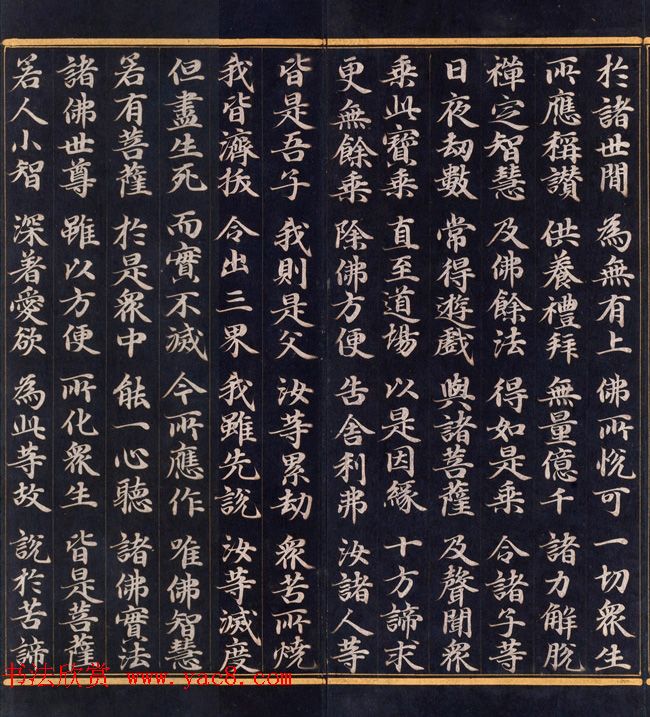 於諸世間 為無有上 佛所悅可 一切眾生
所應稱讚 供養禮拜 無量億千 諸力解脫
禪定智慧 及佛餘法 得如是乘 令諸子等
日夜劫數 常得遊戲 與諸菩薩 及聲聞眾
乘此寶乘 直至道場 以是因緣 十方諦求
更無餘乘 除佛方便 告舍利弗 汝諸人等
皆是吾子 我則是父 汝等累劫 眾苦所燒
我皆濟拔 令出三界 我雖先說 汝等滅度
但盡生死 而實不滅 今所應作 唯佛智慧
若有菩薩 於是眾中 能一心聽 諸佛實法
諸佛世尊 雖以方便 所化眾生 皆是菩薩
若人小智 深著愛欲 為此等故 說於苦諦
书法欣赏 www.yac8.com